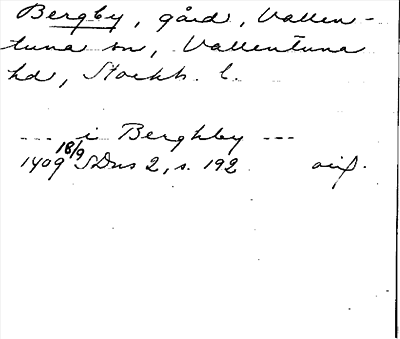 Bergby, gård, Vallen-
tuna sn, Vallentuna
hd, Stockh. l.
--- i Berghby ---
1409 18/9 SDns 2, s. 192